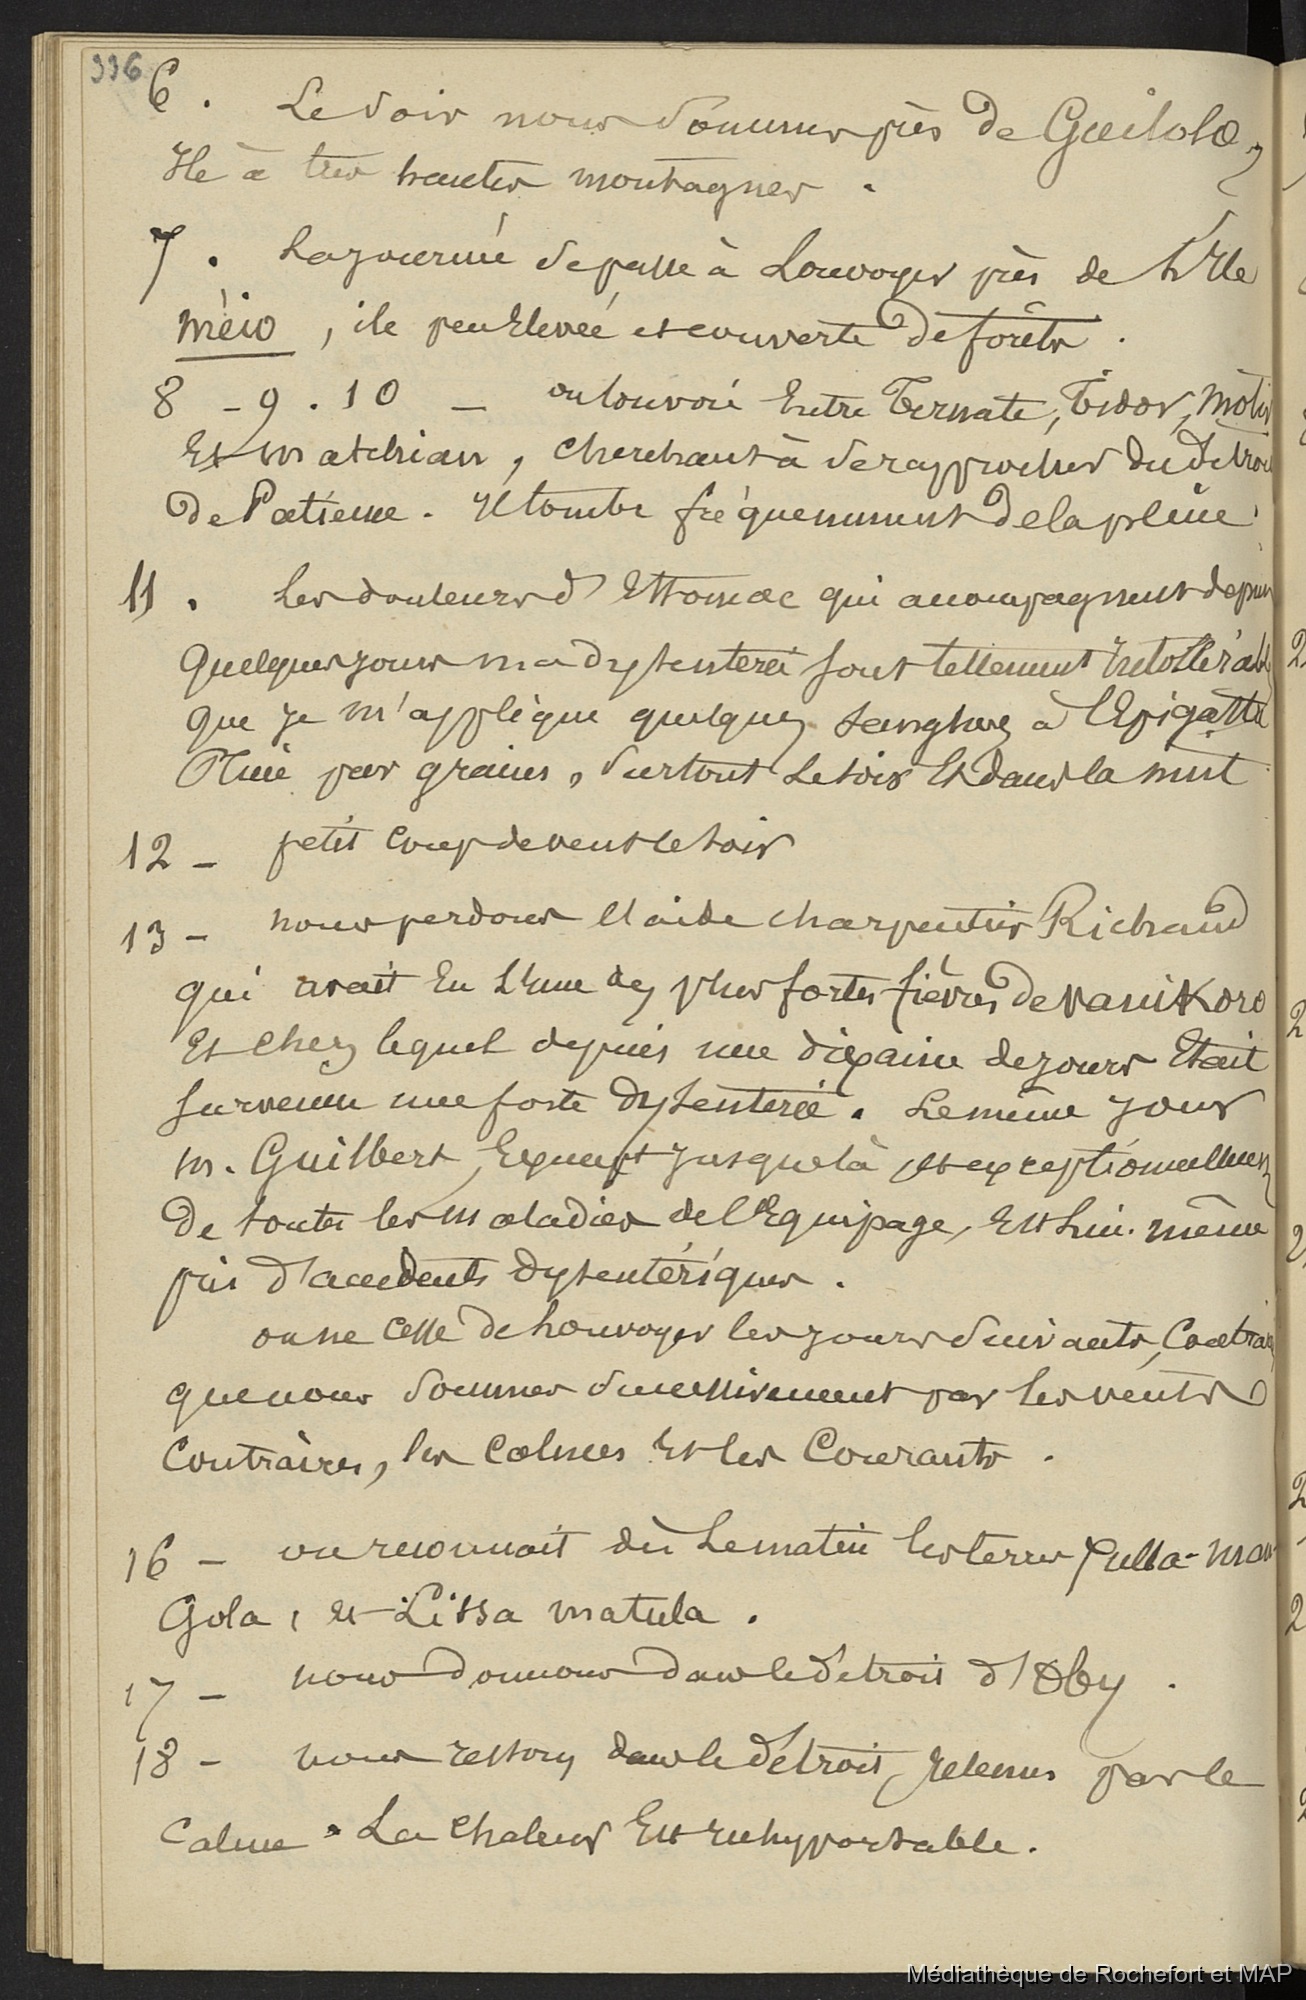 336
6. Le soir nous sommes près de Guilolo,
Ile à très hautes montagnes.
7. La journée se passe à Louvoyer près de l'Ile
méio, ile peu Elevée et couverte de forêts.
8 - 9. 10 - on louvoie Entre Ternate, Tidor, Motir
Et Matchian, cherchant à se rapprocher du Détroit
de Patieme. Il tombe fréquemment de la pluie.
11. Les douleurs d'Estomac qui accompagnent depuis
quelques jours ma dysenterie sont tellement Intollérables
que je m'applique quelques sangsues à l'Epigastre
Pluie par grains, surtout le soir Et dans la nuit
12 - petit coup de vent le soir
13 - nous perdons l'aide charpentier Richaud
qui avait Eu l'une des plus fortes fièvres de vanikoro
Et chez lequel depuis une dixaine de jours Etait
survenue une forte dysenterie. Le même jour
M. Guilbert, Exempt jusque là et exceptionnellement
de toutes les maladies de l'Equipage, Est lui-même
pris d'accidents dysentériques.
on ne cesse de louvoyer les jours suivants, Contrariés
que nous sommes successivement par les vents
contraires, les calmes Et les courants.
16 - on reconnait dès le matin les terres Xulla-man
Gola, et Lissa matula.
17 - nous donnons dans le détroit d'Oby.
18 - nous restons dans le détroit, retenus par le
calme. La chaleur Est insupportable.
Médiathèque de Rochefort et MAP